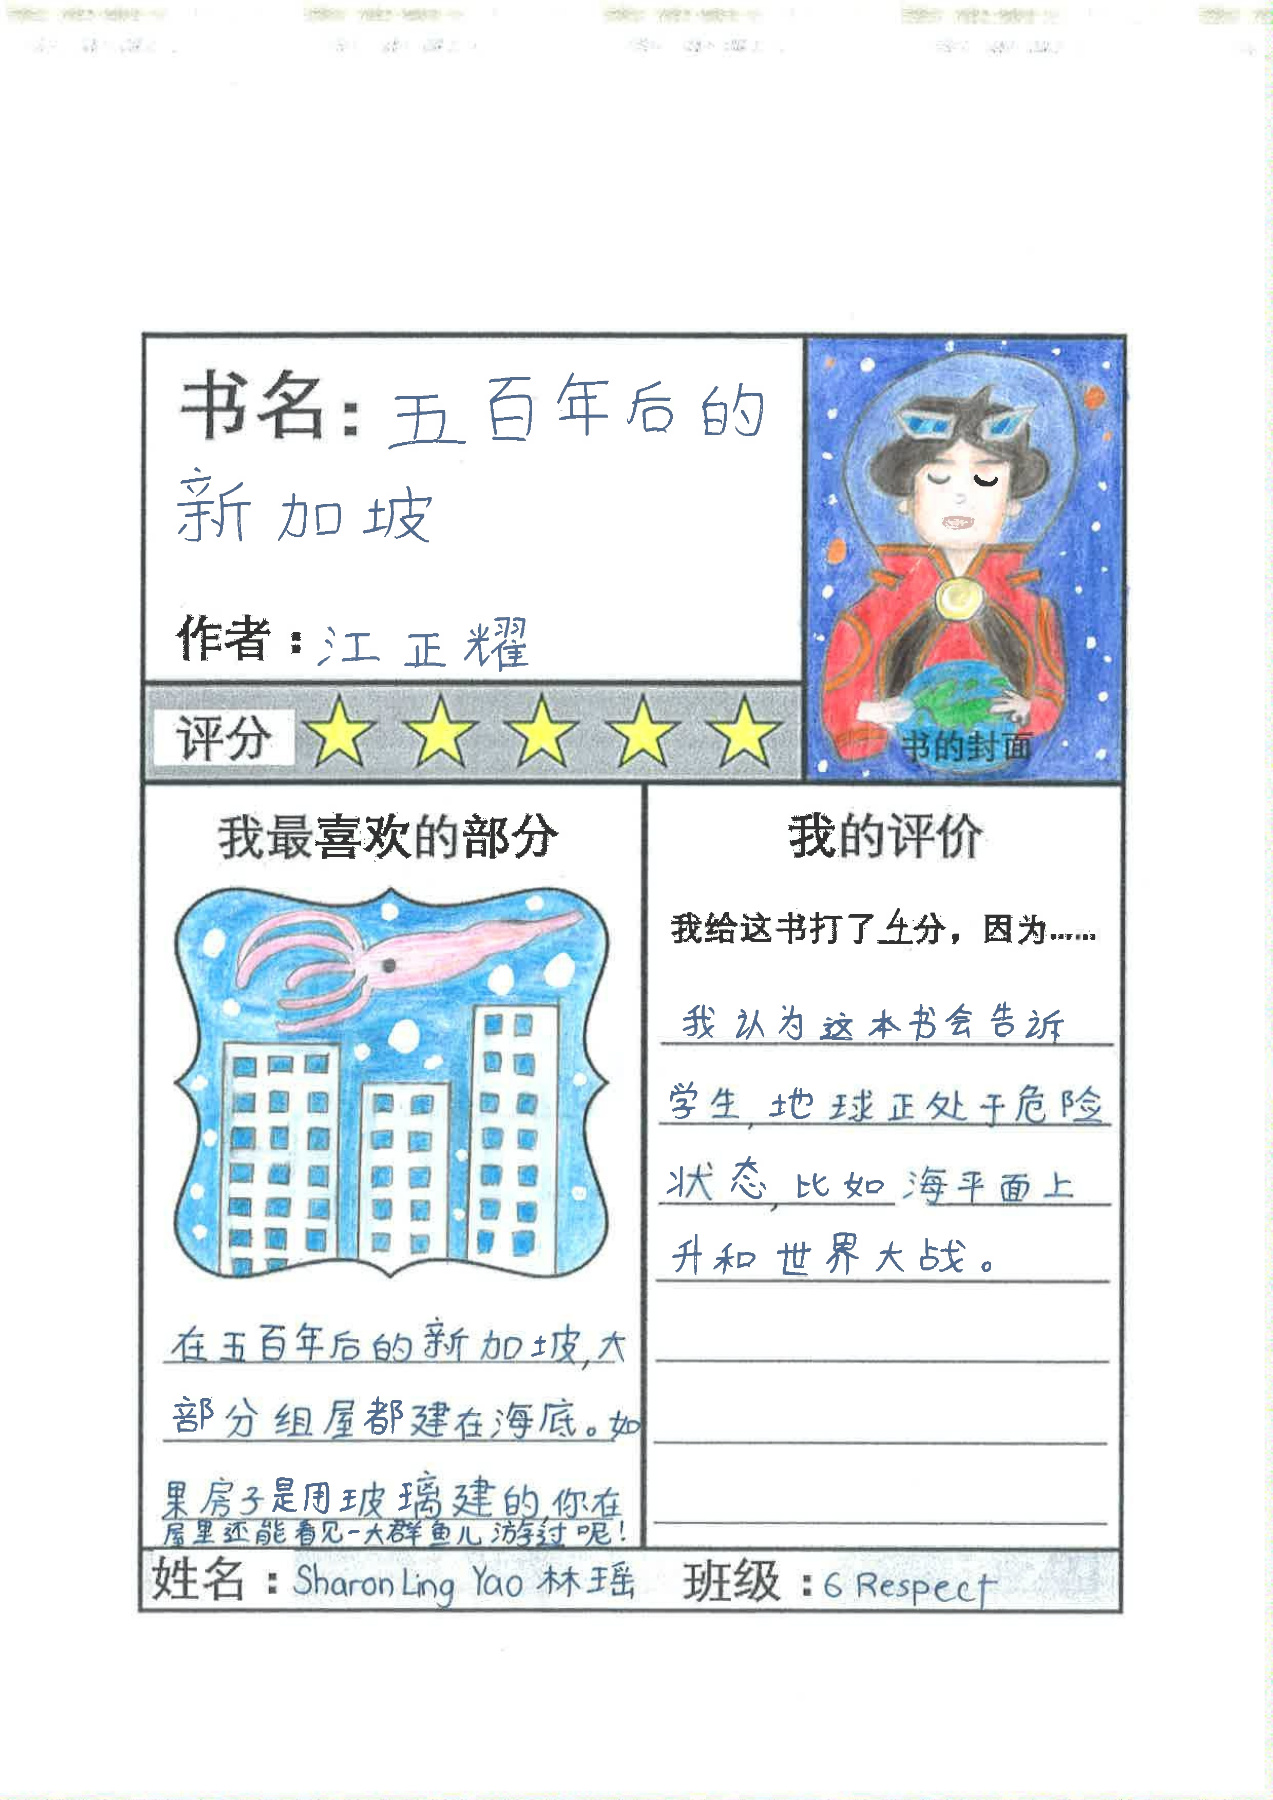 书名：五百年后的
新加坡
作者：江正耀
评分
书的封面
我最喜欢的部分
在五百年后的新加坡,大
部分组屋都建在海底。如
果房子是用玻璃建的,你在
屋里还能看见一大群鱼儿游过呢!
我的评价
我给这书打了4分，因为……
我认为这本书会告诉
学生,地球正处于危险
状态,比如海平面上
升和世界大战。
姓名：Sharon Ling Yao 林瑶 班级：6 Respect